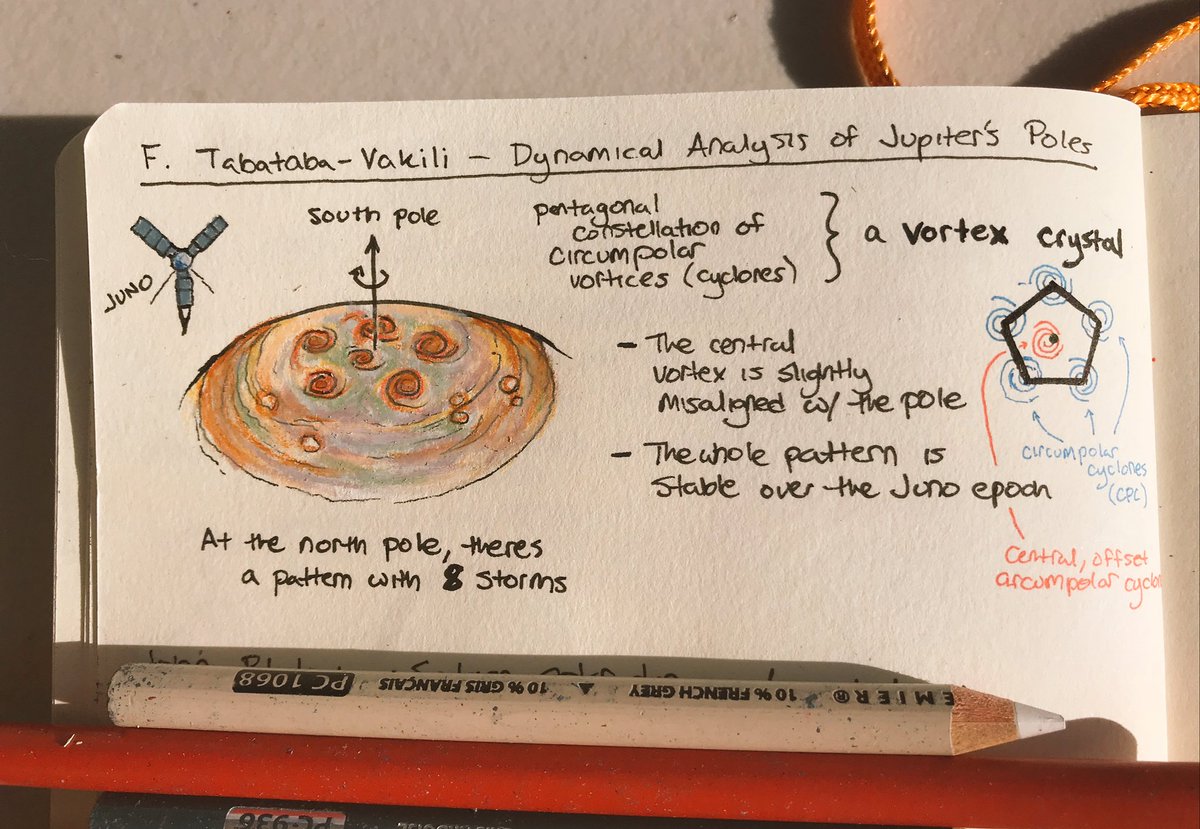 F. Tabataba-Vakili – Dynamical Analysis of Jupiter's Poles
JUNO
south pole
pentagonal
constellation of
circumpolar
vortices (cyclones)
a vortex crystal
– The central
vortex is slightly
misaligned w/ the pole
– The whole pattern is
stable over the Juno epoch
circumpolar
cyclones
(CPC)
central, offset
circumpolar
At the north pole, theres
a pattern with 8 storms
EMIER® 10% FRENCH GREY ▲ 10% GRIS FRANÇAIS PC 1068
PC 938